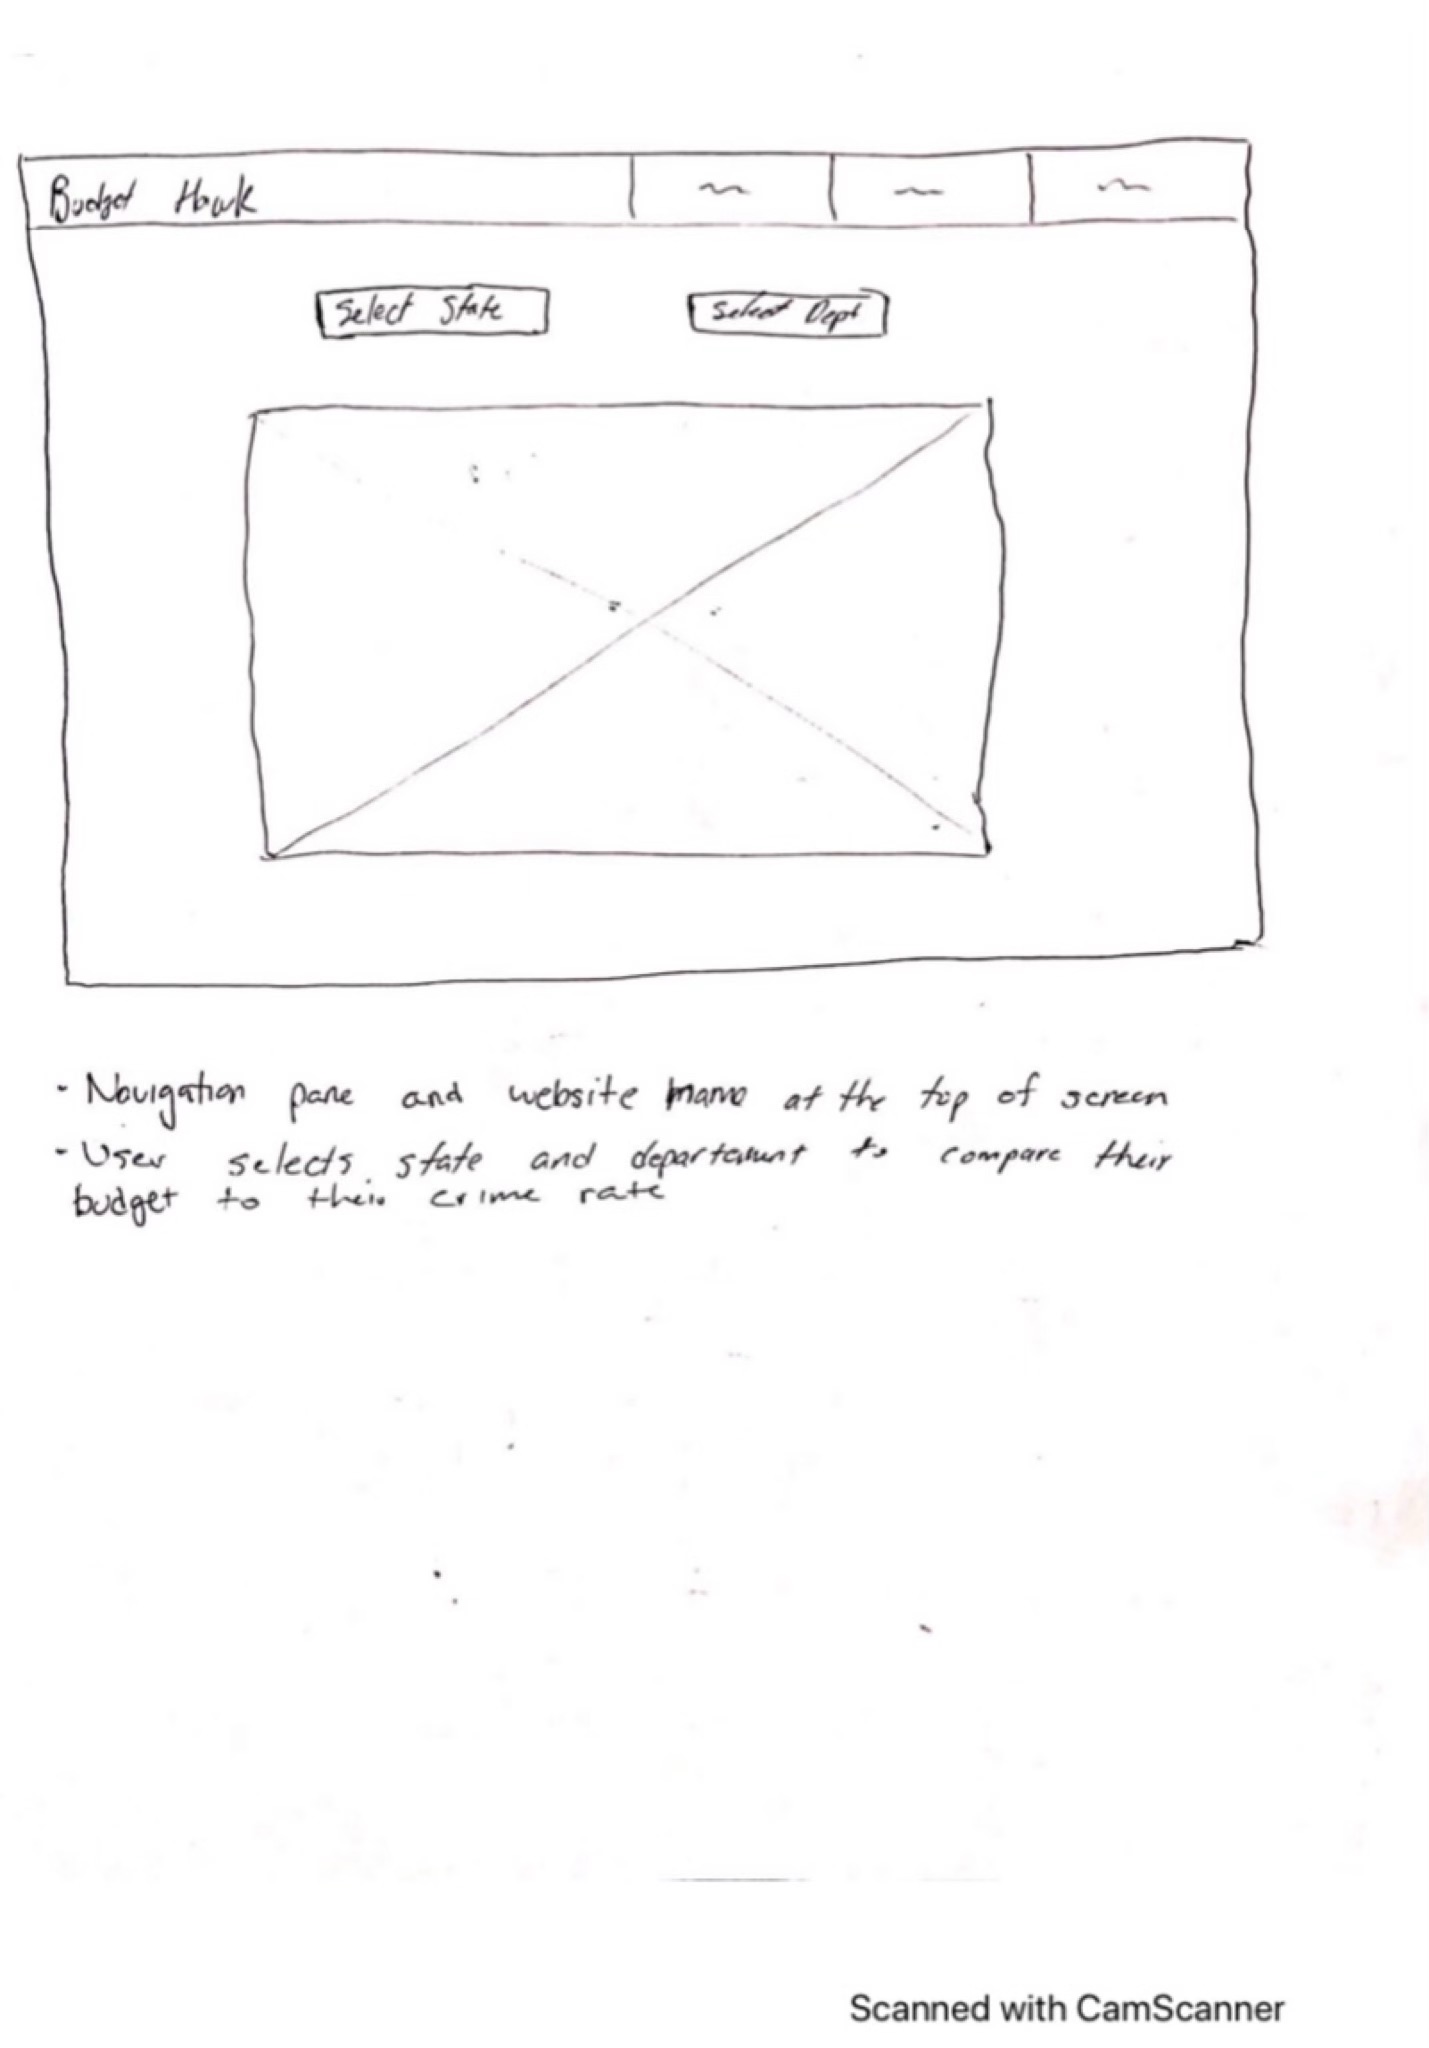 Budget Hawk
Select State
Select Dept
- Navigation pane and website name at the top of screen
- User selects state and department to compare their
budget to their crime rate
Scanned with CamScanner